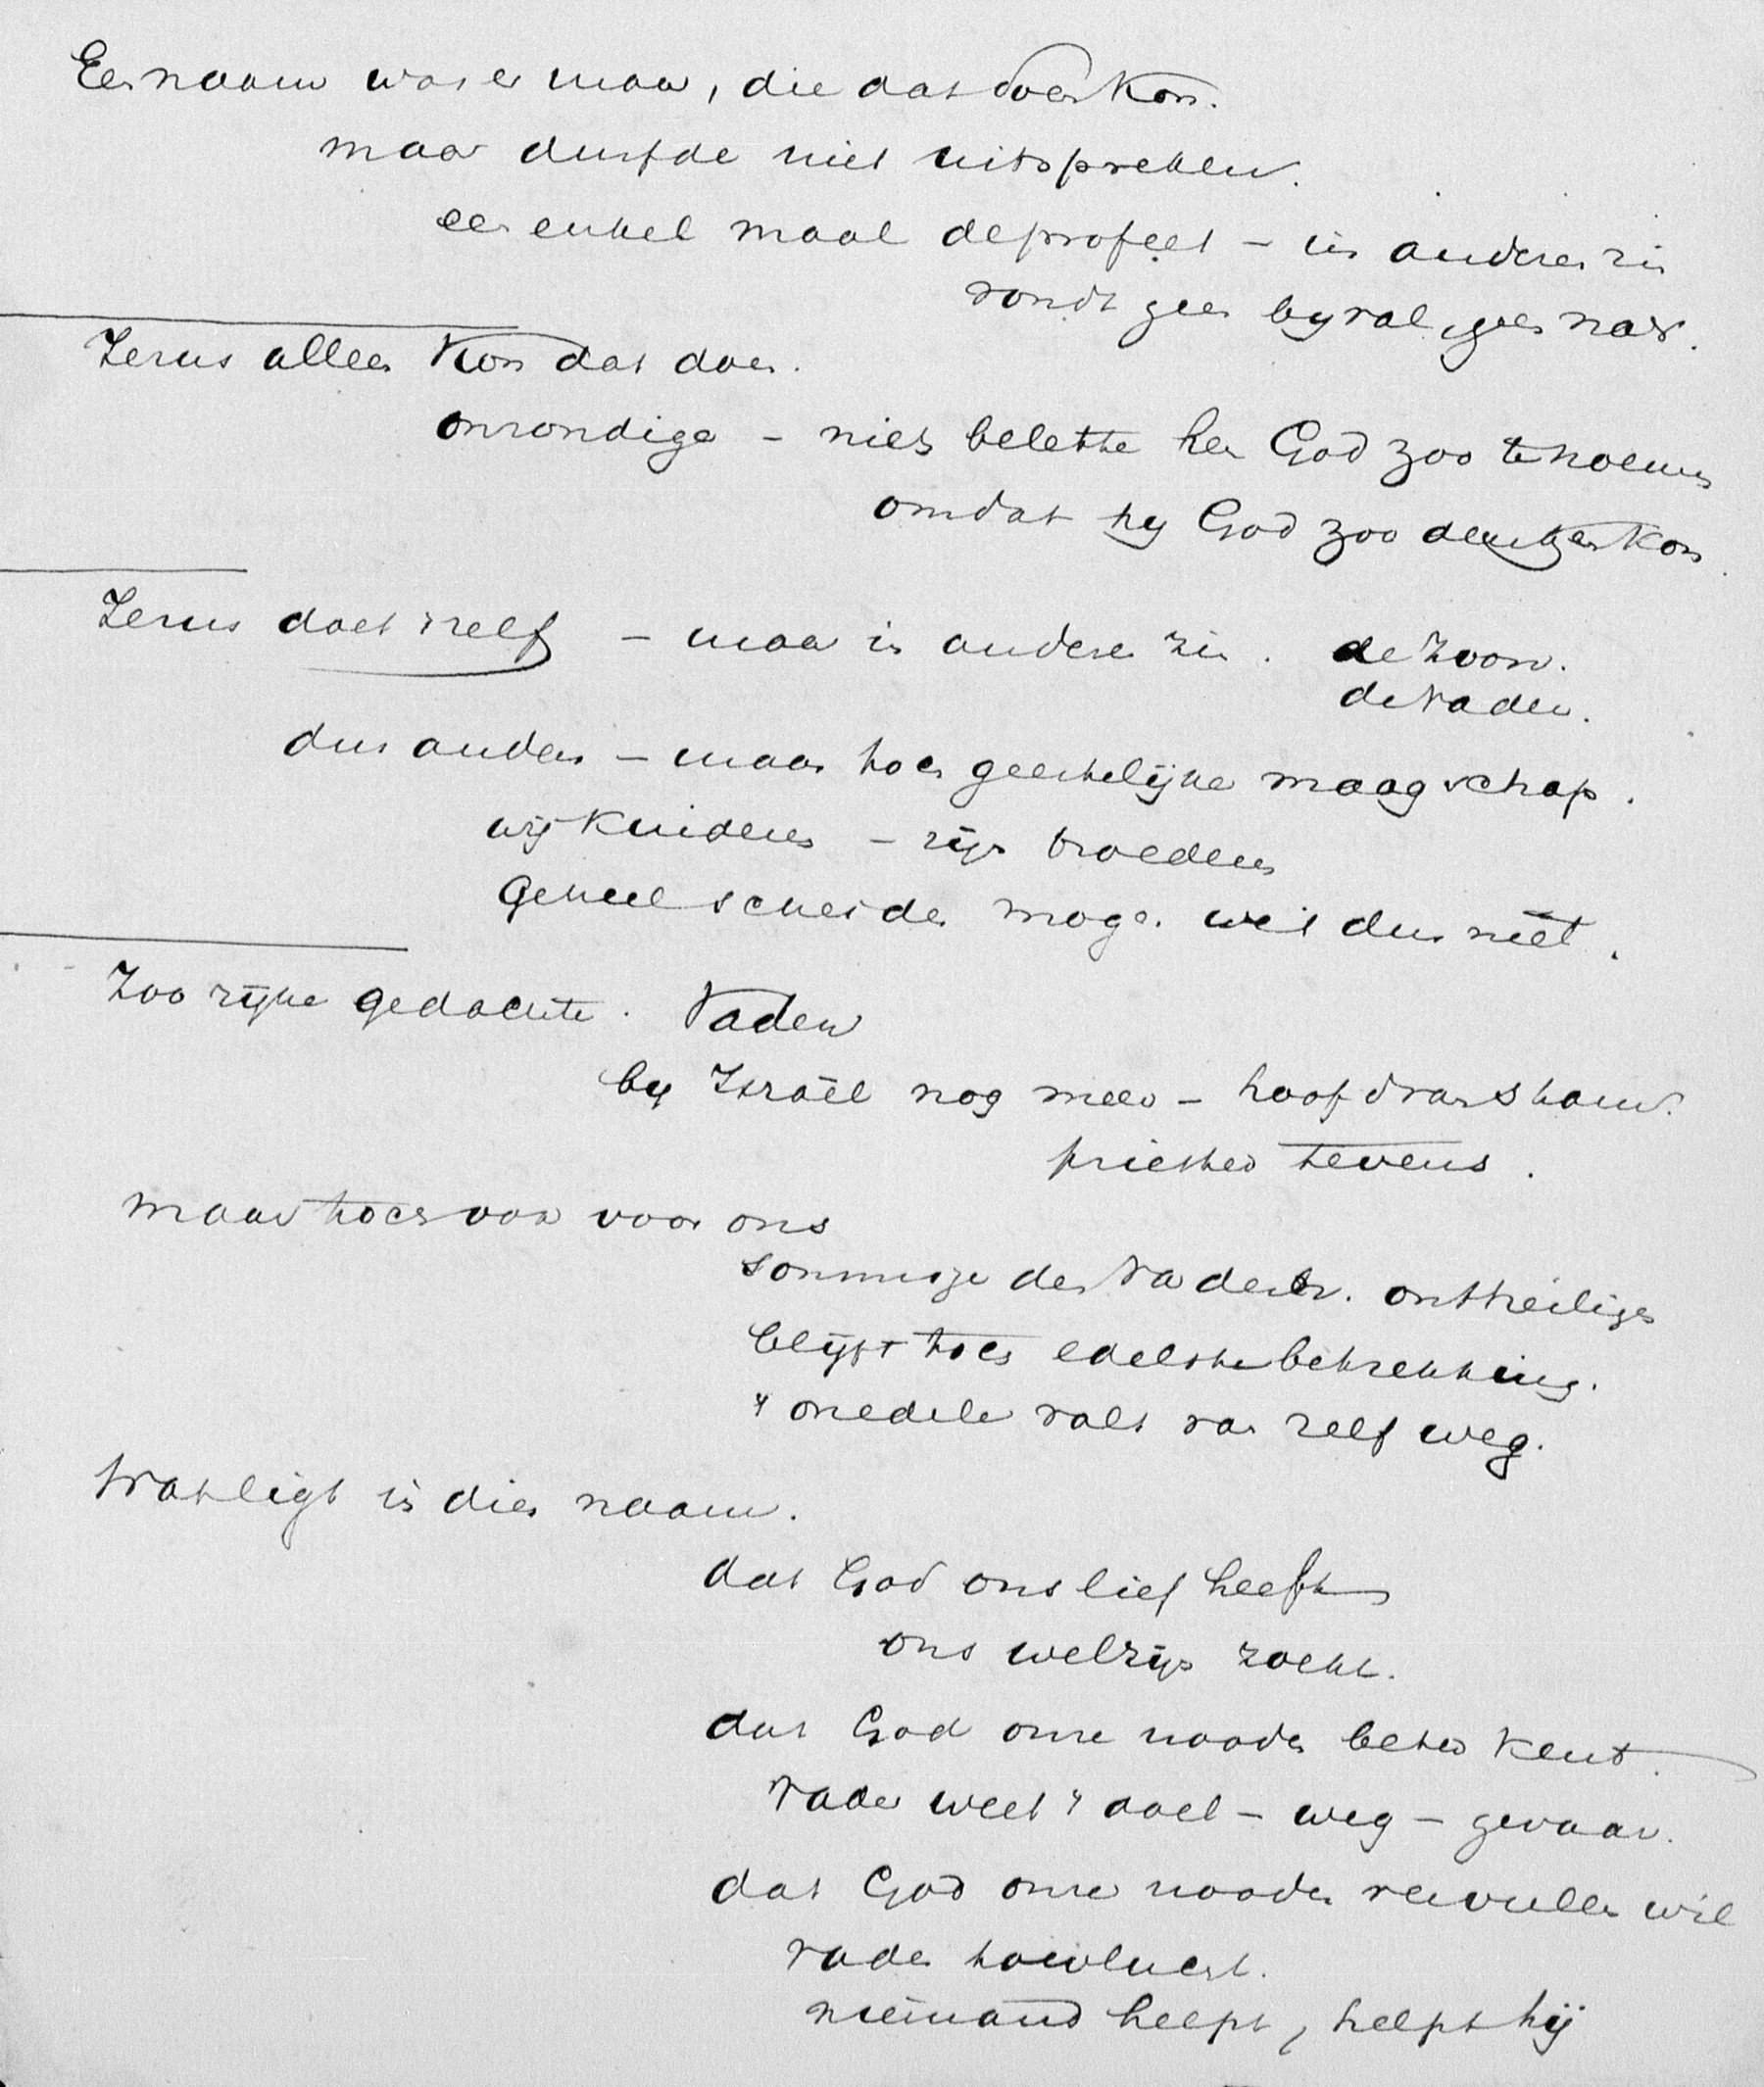 Een naam was er maar, die dat doen kon.
maar durfde niet uitspreken.
een enkel maal de profeet – in anderen zin
vondt geen byval, geen nav.
Jezus alleen kon dat doen.
onzondige – niets belette hen God zoo te noemen
omdat hy God zoo denken kon
Jezus doet 't zelf – maar in anderen zin. de Zoon.
de Vader.
dus anders – maar toch geestelijke maagschap.
wij kinderen – zijn broeders
Geheel scheiden mogen wij dus niet.
Zoo rijke gedachte. Vader
by Israël nog meer – hoofd van stam.
priester tevens.
maar toch ook voor ons
sommige den Vadern. ontheiligen
blijft toch edelste betrekking.
't onedele valt van zelf weg.
Wat ligt in dien naam.
dat God ons lief heeft
ons welzijn zoekt.
dat God onze nooden beter kent.
Vader weet 't doel – weg – gevaar.
dat God onze nooden vervullen wil
Vader
niemand helpt, helpt hij